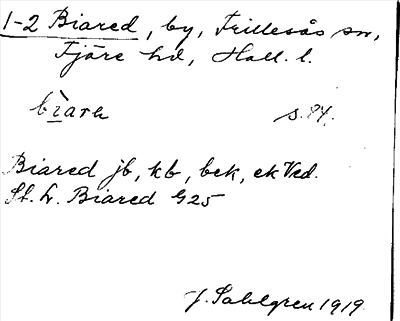 1-2 Biared, by, Frillesås sn,
Fjäre hd, Hall. l.
bìara s. 84.
Biared jb, kb, bek, ek Ved.
St. L. Biared G25
J. Sahlgren 1919